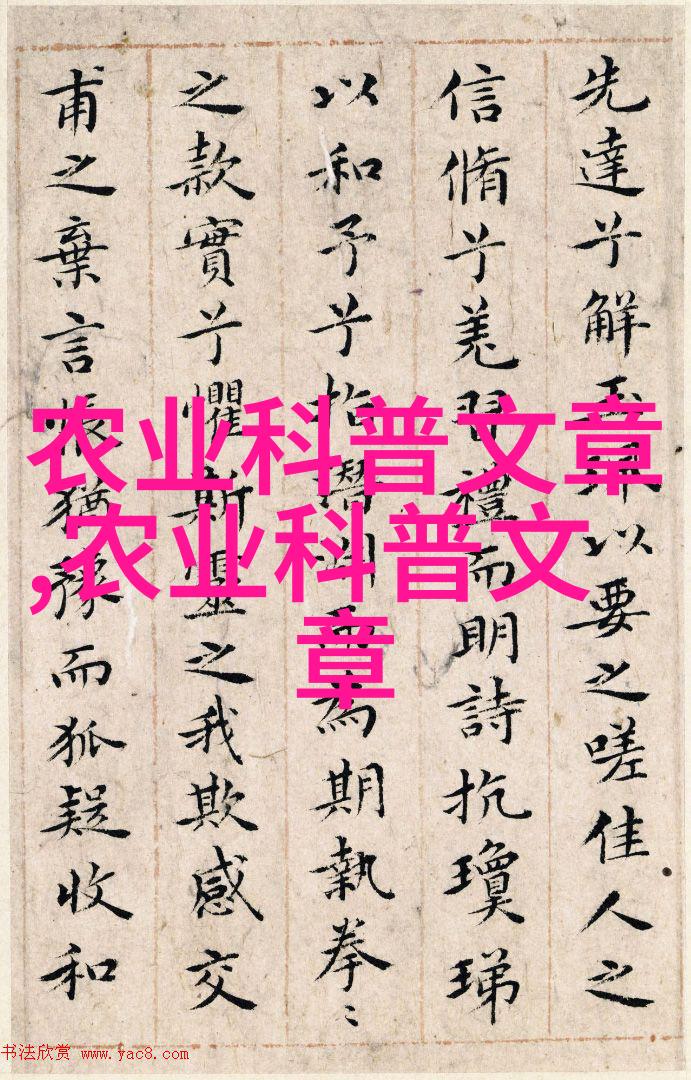 先達兮解玉以要之嗟佳人之
信脩兮羌習禮而明詩抗瓊珶
以和予兮指潛為期執拳〻
之款實兮懼斯靈之我欺感交
甫之棄言悵猶豫而狐疑收和
农业科普文章
,农业科普文
章
书法欣赏 www.yac8.com